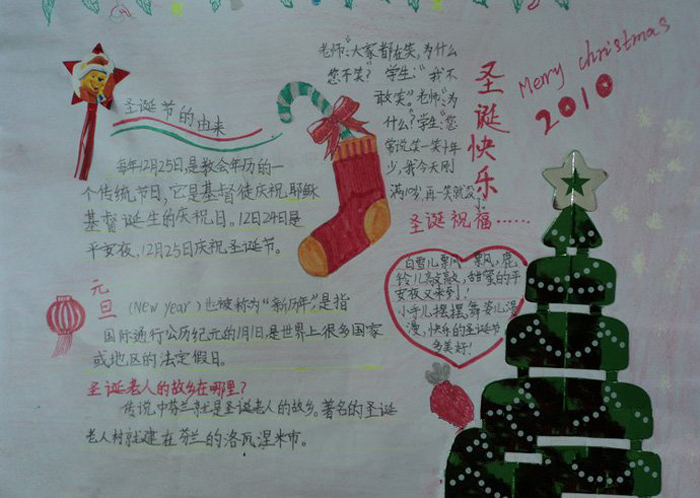 圣诞节的由来
每年12月25日,是教会年历的一
个传统节日,它是基督徒庆祝耶稣
基督诞生的庆祝日。12月24日是
平安夜,12月25日庆祝圣诞节。
元旦
(New year)也被称为“新历年”是指
国际通行公历纪元的1月1日,是世界上很多国家
或地区的法定假日。
圣诞老人的故乡在哪里?
传说中芬兰就是圣诞老人的故乡。著名的圣诞
老人村就建在芬兰的洛瓦涅米市。
老师:“大家都在笑,为什么
您不笑?”学生:“我不
敢笑。”老师:“为
什么?”学生:“您
常说笑一笑十年
少,我今天刚
满10岁,再一笑就没
圣诞快乐
Merry christmas
2010
圣诞祝福……
白雪儿飘飘,鹿
铃儿敲敲敲,甜蜜的平
安夜又来到!
小手儿摆摆,舞姿儿漫
漫,快乐的圣诞节
多美好!